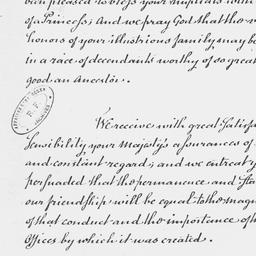 been pleased to bless your nuptials with
of a Princess; and we pray God that the
honors of your illustrious family may be
in a race of decendants worthy of so great
good an Ancestor.
We receive with great Satisfa
Sensibility your Majesty's assurances of
and constant regard; and we entreat y
persuaded that the permanence and sta
our friendship will be equal to the mag
of that conduct and the importance of th
Offices by which it was created.